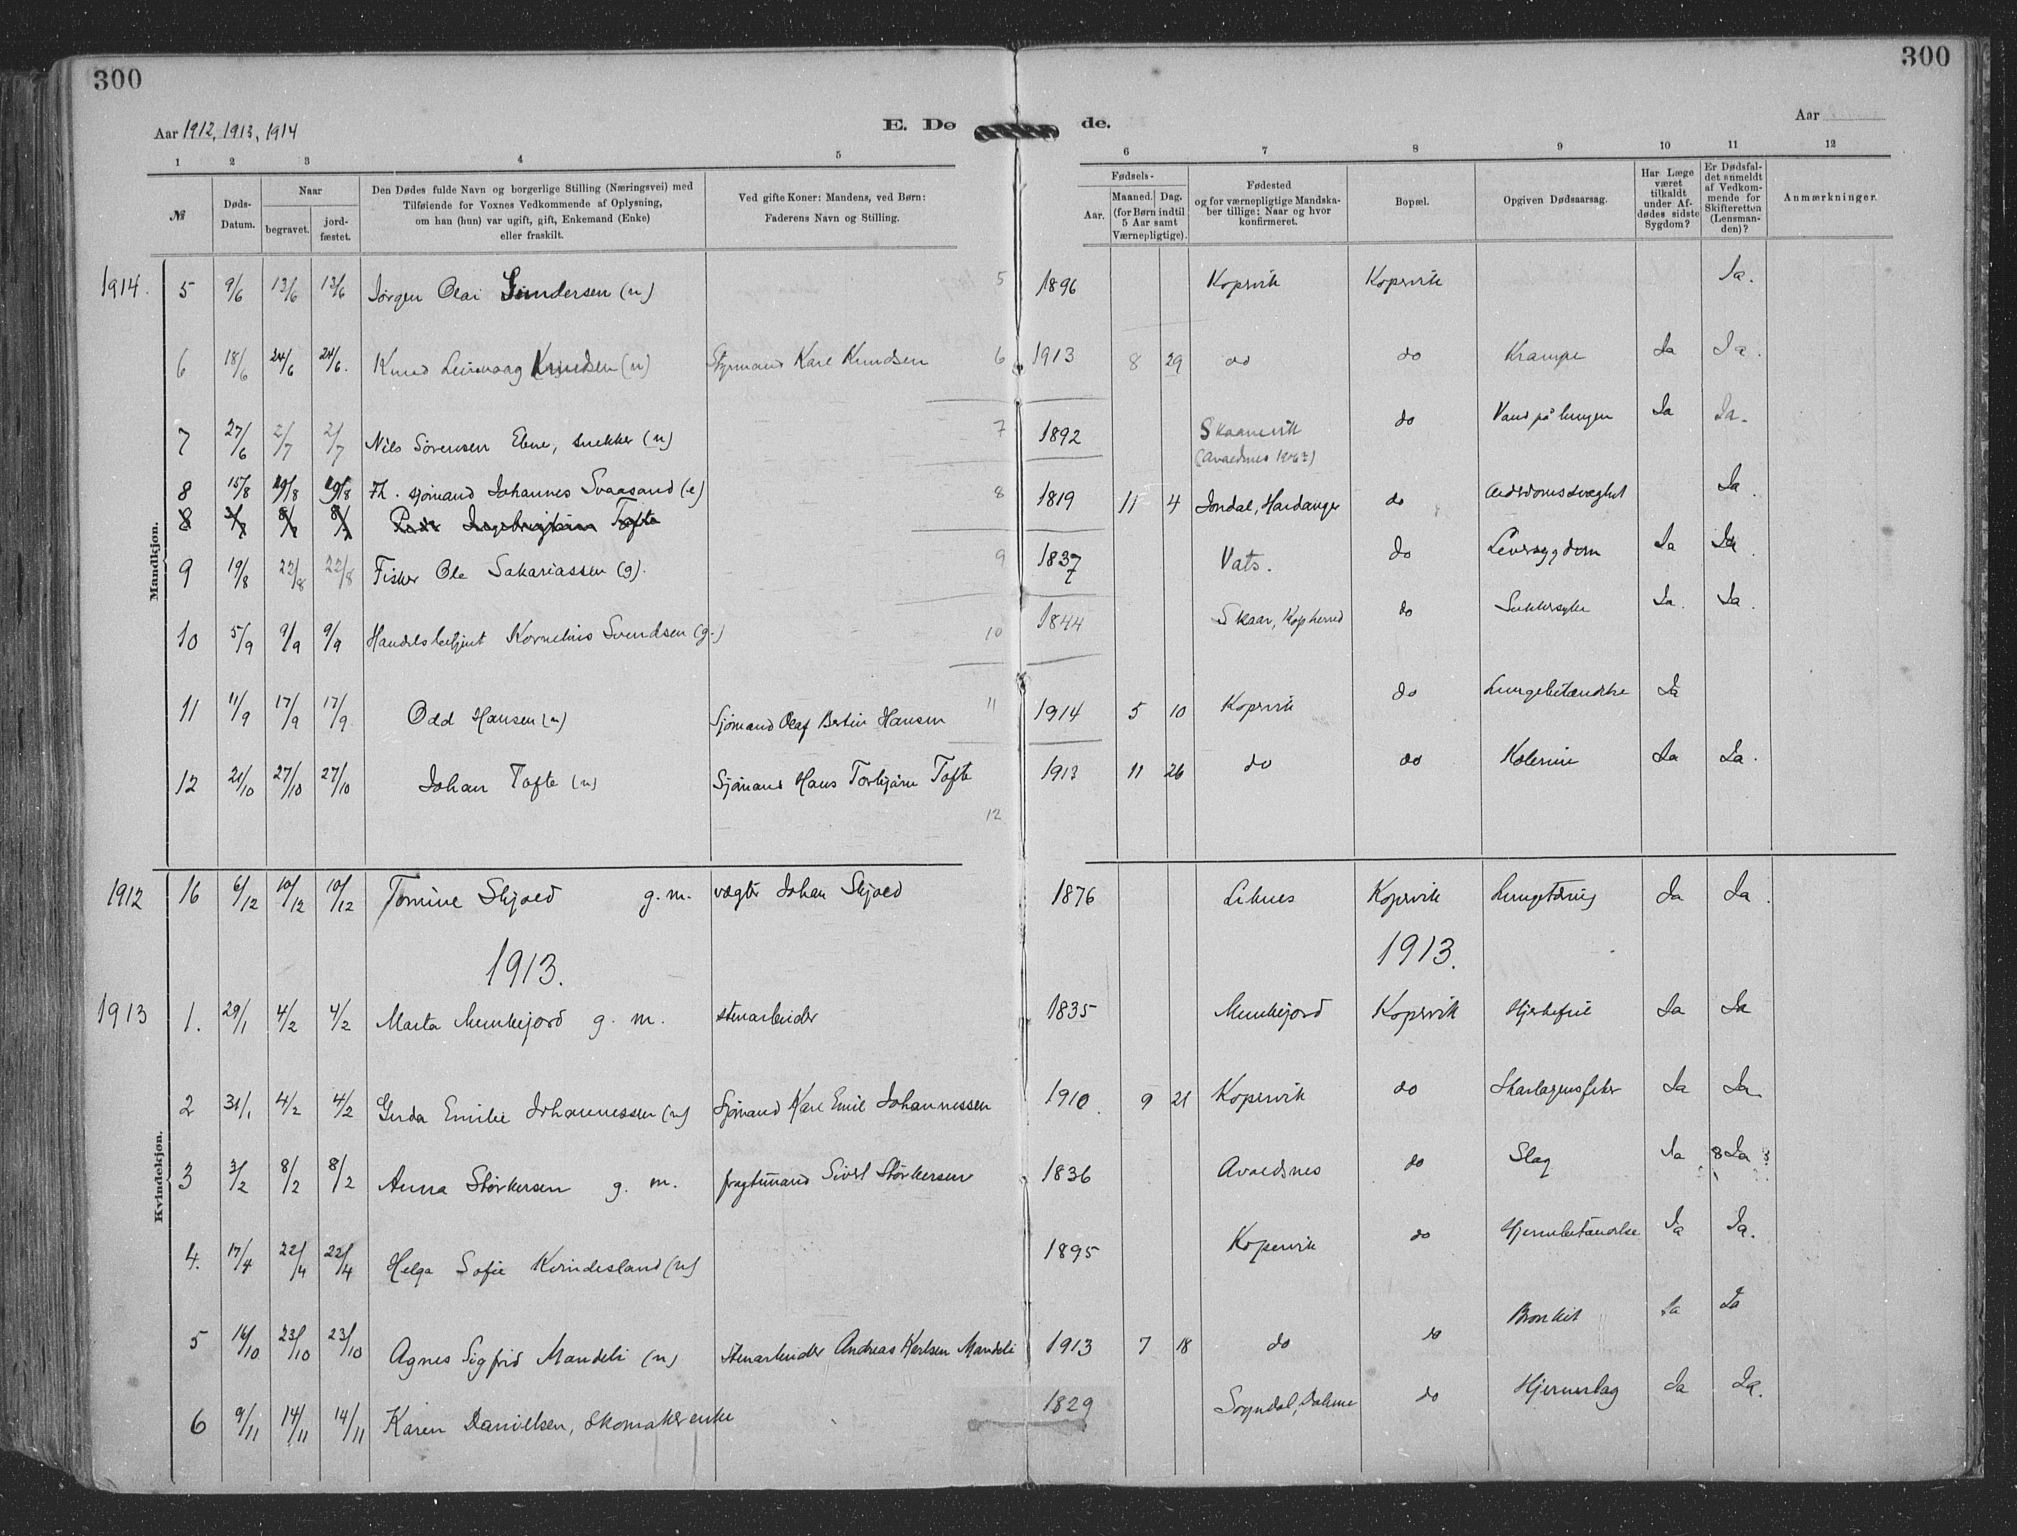 300
300
Aar 1912, 1913, 1914
E. Dø de.
Aar
1 2 3 4 5 6 7 8 9 10 11 12
№
Døds-Datum.
Naar
begravet.
jordfæstet.
Den Dødes fulde Navn og borgerlige Stilling (Næringsvei) med
Tilføiende for Voxnes Vedkommende af Oplysning,
om han (hun) var ugift, gift, Enkemand (Enke)
eller fraskilt.
Ved gifte Koner: Mandens, ved Børn:
Faderens Navn og Stilling.
Fødsels-
Aar.
Maaned. Dag.
(for Børn indtil
5 Aar samt
Værnepligtige).
Fødested
og for værnepligtige Mandska-
ber tillige: Naar og hvor
konfirmeret.
Bopæl.
Opgiven Dødsaarsag.
Har Læge
været
tilkaldt
under Af-
dødes sidste
Sygdom?
Er Dødsfal-
det anmeldt
af Vedkom-
mende for
Skifteretten
(Lensman-
den)?
Anmærkninger.
Mandkjøn.
1914. 5 9/6 13/6 13/6 Jørgen Olai Gundersen (u) 5 1896 Kopervik Kopervik Ja.
6 18/6 24/6 24/6. Knud Leinvaag Knudsen (u) Styrmand Karl Knudsen 6 1913 8 29 do do Krampe Ja Ja.
7 27/6 2/7 2/7 Nils Sørensen Ebne, snekker (u) 7 1892 Skaanevik (Avaldsnes 1906?) do Vand på lungen Ja Ja.
8 15/8 19/8 19/8 Fh. sjømand Johannes Svaasand (e) 8 1819 11 4 Jondal, Hardanger do Alderdomssvaghet Ja.
8 Peder Ingebrigtsen Tofte
9 19/8 22/8 22/8 Fisker Ole Sakariassen (g). 9 1837 Vats. do Leversygdom Ja Ja.
10 5/9 9/9 9/9 Handelsbetjent Kornelius Svendsen (g.) 10 1844 Skaar, Kopherred do Sukkersyke Ja. Ja.
11 11/9 17/9 17/9 Odd Hansen (u) Sjømand Olaf Bertin Hansen 11 1914 5 10 Kopervik do Lungebetændelse Ja
12 21/10 27/10 27/10 Johan Tofte (u) Sjømand Hans Torbjørn Tofte 12 1913 11 26 do do Kolerine Ja Ja.
Kvindekjøn.
1912 16 6/12 10/12 10/12 Tomine Skjold g.m. vægter Johan Skjold 1876 Liknes Kopervik Lungetæring Ja Ja.
1913. 1913.
1913 1. 29/1 4/2 4/2 Marta Munkejord g. m. stenarbeider 1835 Munkejord Kopervik Hjertefeil Ja Ja
2 31/1 4/2 4/2 Gerda Emilie Johannessen (u) Sjømand Karl Emil Johannessen 1910. 9 21 Kopervik do Skarlagensfeber Ja Ja
3 3/2 8/2 8/2 Anna Størkersen g. m. fragtemand Sivert Størkersen 1836 Avaldsnes do Slag Ja Ja
4. 17/4 22/4 22/4 Helga Sofie Kvindesland (u) 1895 Kopervik do Hjernebetændelse Ja Ja.
5 16/10 23/10 23/10 Agnes Sigfrid Mandeli (u) Stenarbeider Andreas Karlsen Mandeli 1913 7 18 do do Bronkit Ja Ja
6 9/11 14/11 14/11 Karen Danielsen, Skomakerenke 1829 Sogndal, Dalene do Hjerneslag Ja Ja.